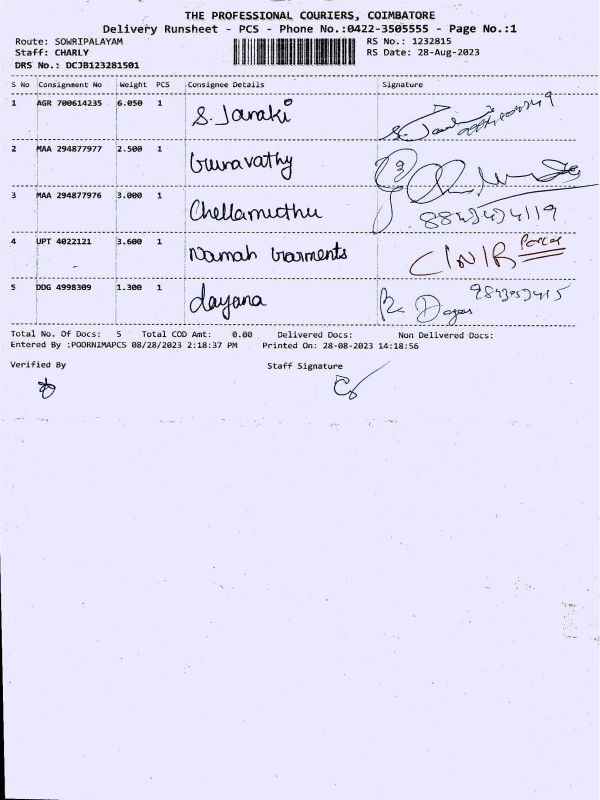 THE PROFESSIONAL COURIERS, COIMBATORE
Delivery Runsheet - PCS - Phone No.:0422-3505555 - Page No.:1
Route: SOWRIPALAYAM RS No.: 1232815
Staff: CHARLY RS Date: 28-Aug-2023
DRS No.: DCJB123281501
S No Consignment No Weight PCS Consignee Details Signature
1 AGR 700614235 6.050 1 S. Janaki
2 MAA 294877977 2.500 1 Gunavathy
3 MAA 294877976 3.000 1 Chellamuthu
4 UPT 4022121 3.600 1 Namah Garments C/N/R
5 DDG 4998309 1.300 1 dayana
Total No. Of Docs: 5 Total COD Amt: 0.00 Delivered Docs: Non Delivered Docs:
Entered By :POORNIMAPCS 08/28/2023 2:18:37 PM Printed On: 28-08-2023 14:18:56
Verified By Staff Signature